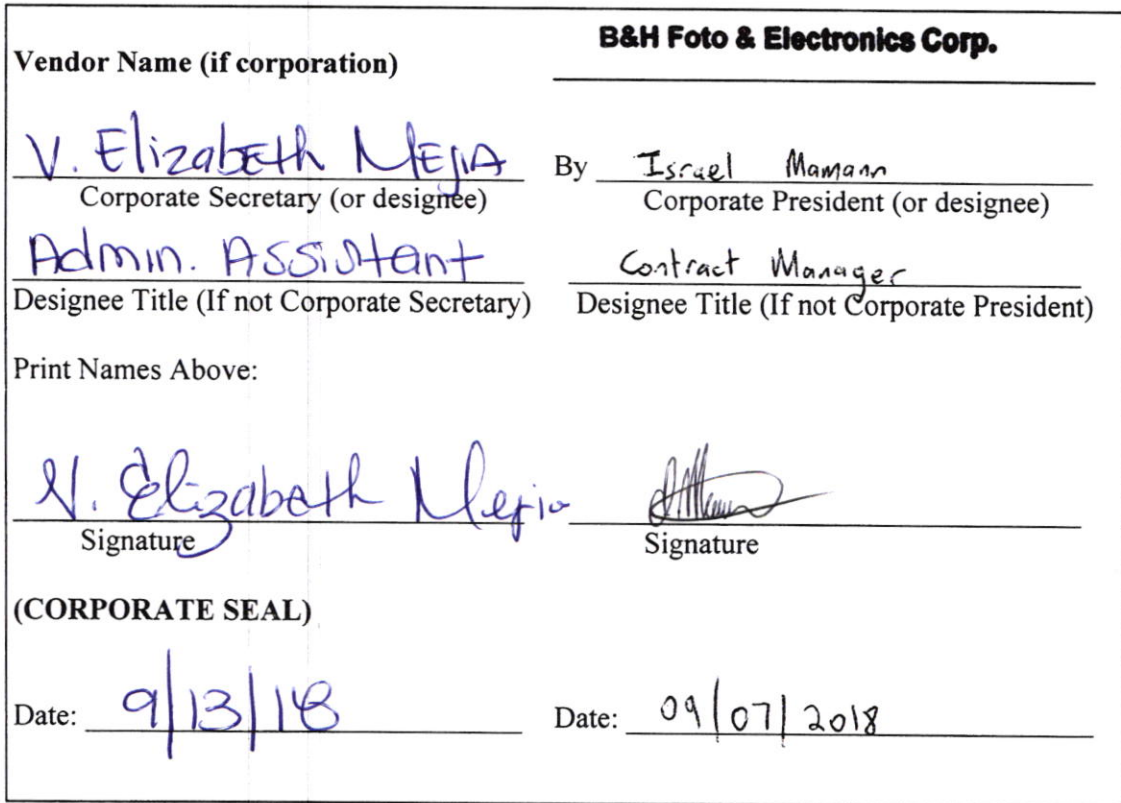 Vendor Name (if corporation) B&H Foto & Electronics Corp.
V. Elizabeth Mejia By Israel Mamann
Corporate Secretary (or designee) Corporate President (or designee)
Admin. Assistant Contract Manager
Designee Title (If not Corporate Secretary) Designee Title (If not Corporate President)
Print Names Above:
V. Elizabeth Mejia
Signature Signature
(CORPORATE SEAL)
Date: 9/13/18 Date: 09/07/2018